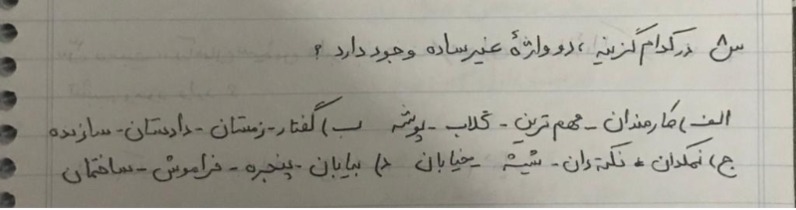 س۸ در کدام گزینه ، دو واژهٔ غیرساده وجود دارد ؟
الف) کارمندان - مهم‌ترین - گلاب - پوشه ب) گفتار - زمستان - دادستان - سازنده
ج) نمکدان - نکته‌دان - شیشه - خیابان د) بیابان - پنجره - فراموش - ساختمان